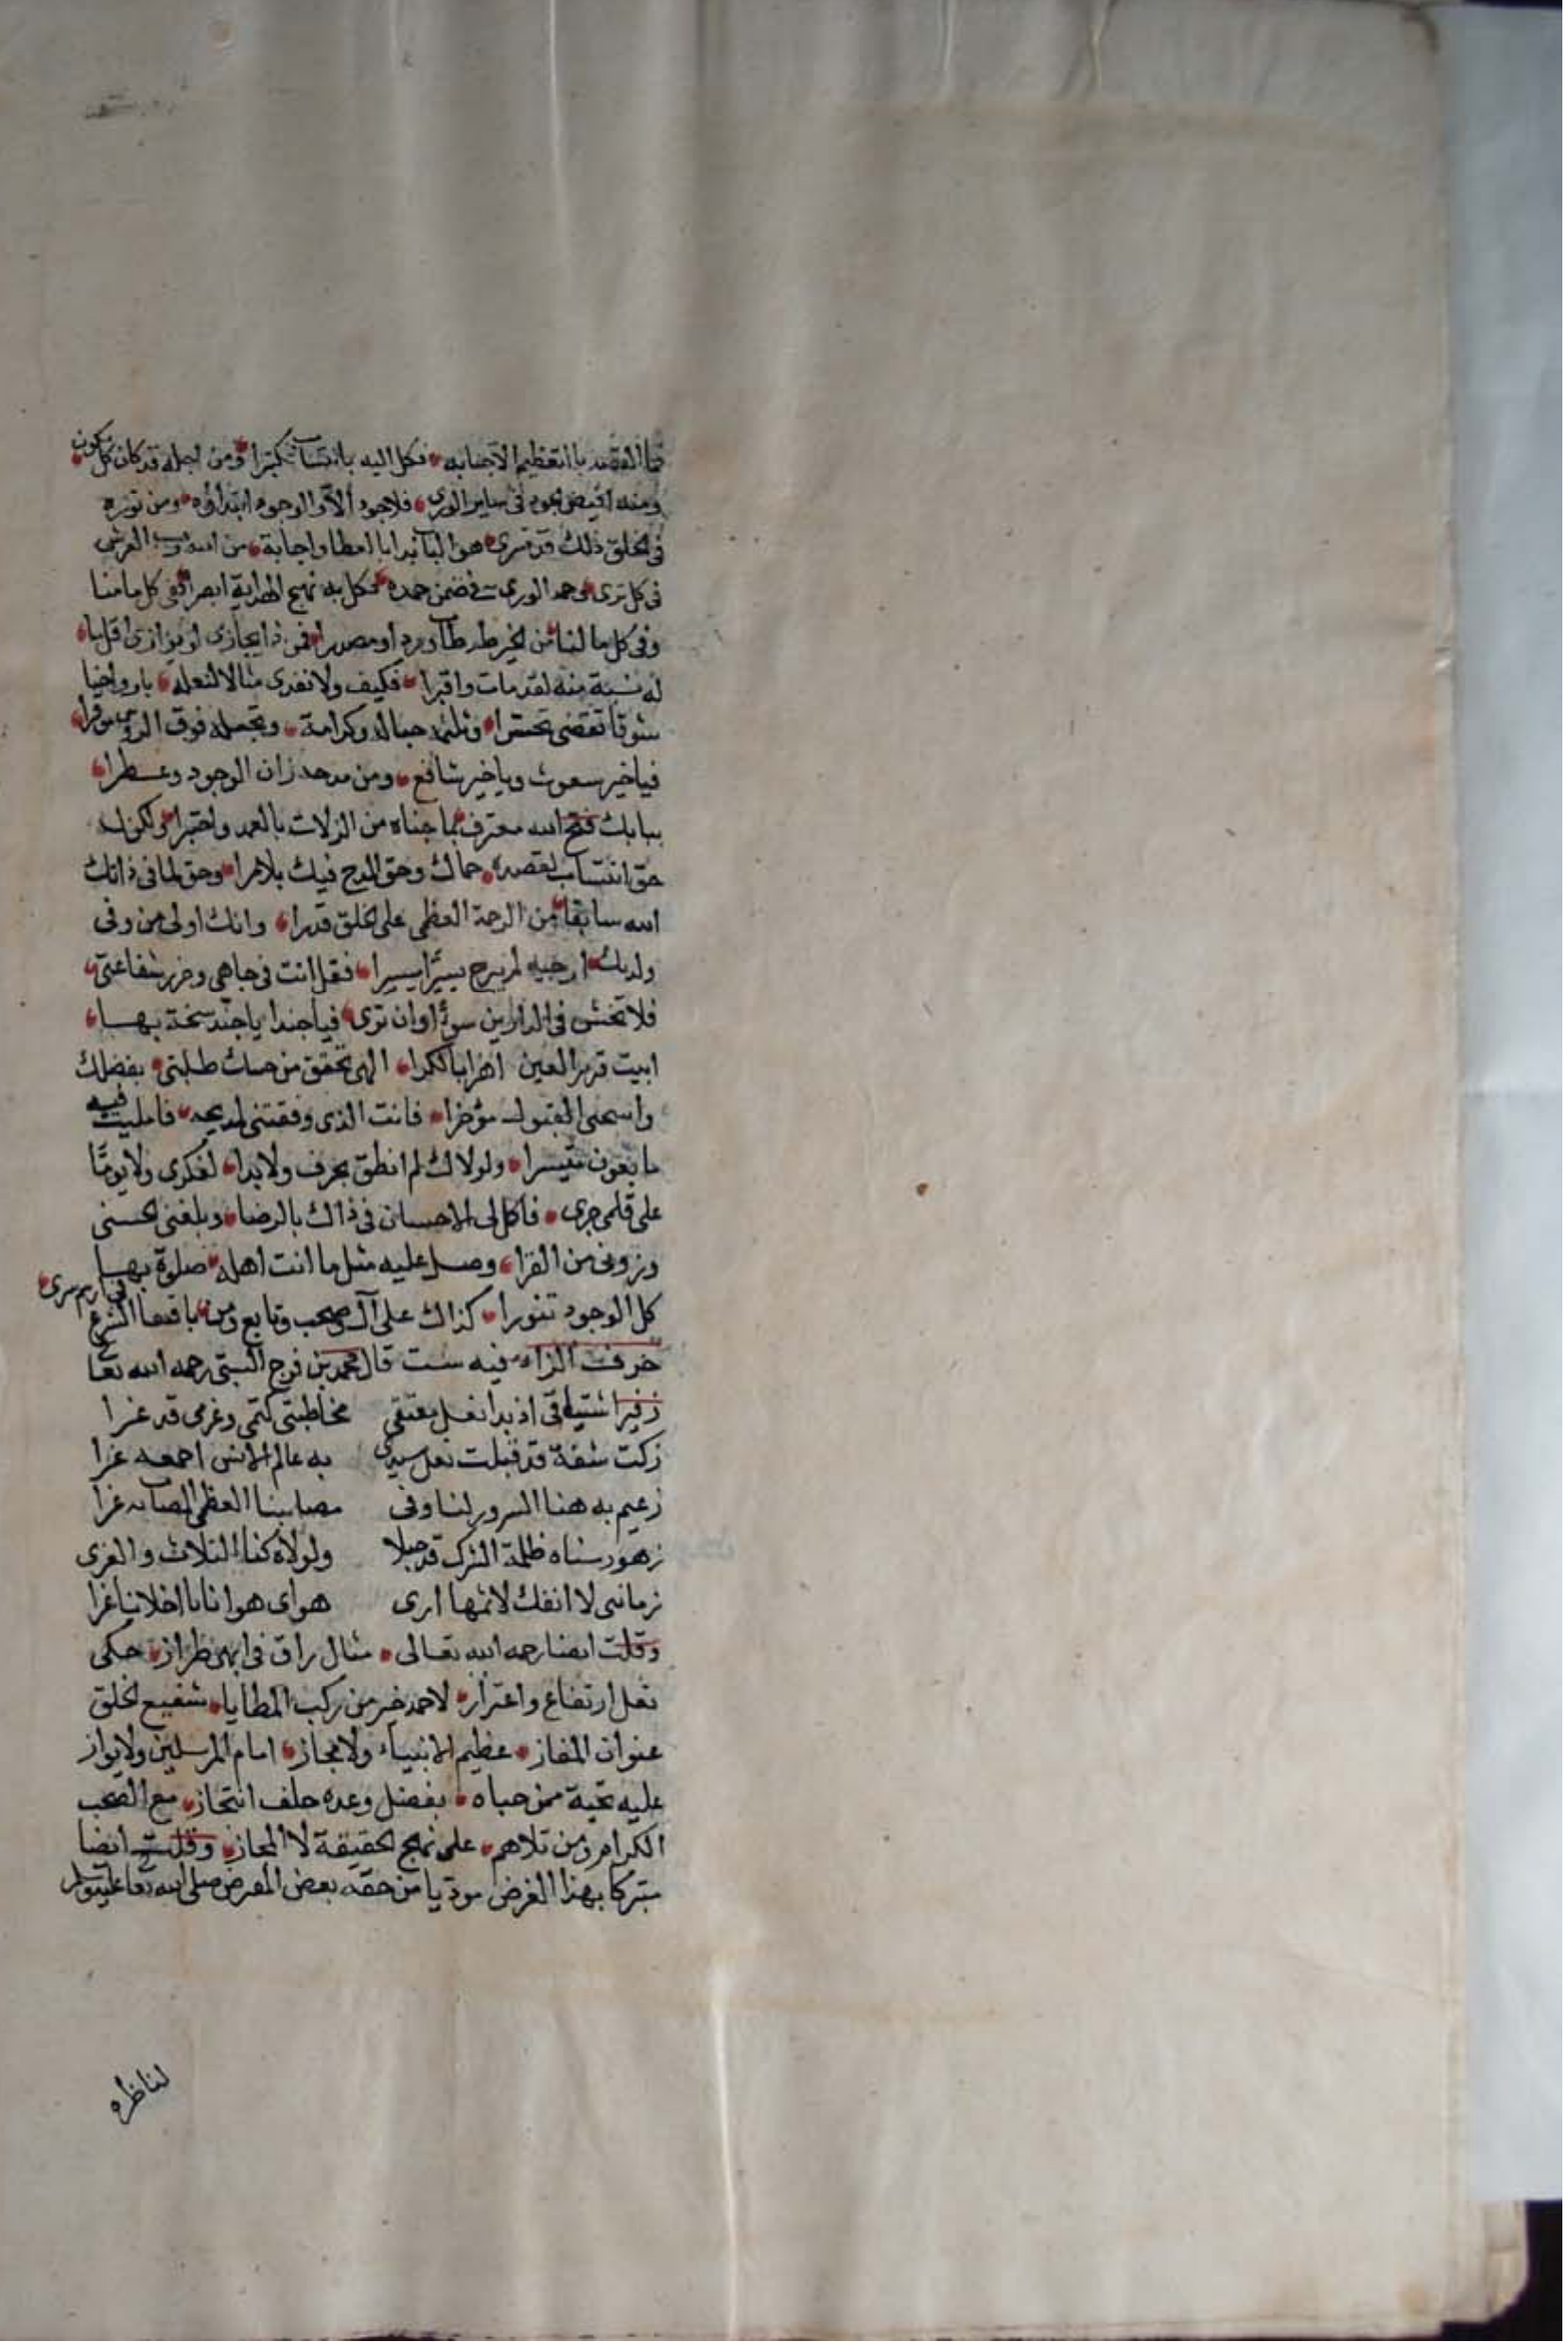 فما القصد بالتعظيم الا جنابه فكل اليه بانتساب تكبرا ومن اجله قد كان كل مكون
ومنه افيض الجود فى ساير الورى فلا جود الا والوجود ابتداؤه ومن نوره
فى الخلق ذلك قد سرى هو الباب بدا بالعطا واجابة من الله رب العرش
فى كل ترى وحمد الورى فى ضمن حمده فكل به نهج الهداية ابصرا ففى كل ما منا
وفى كل ما لنا من الخير طه طاب وردا ومصدرا فمن ذا يجازى او يوازى اقل ما
له نسبة منه لقد مات واقبرا فكيف ولا نفدى مثالا لنعله بارواحنا
شوقا تقضى تحسرا ونلثمه حبا له وكرامة ونجعله فوق الروس موقرا
فيا خير مبعوث ويا خير شافع ومن مدحه زان الوجود وعطرا
ببابك فتح الله معترف بما جناه من الزلات بالعمد واجترا ولكن له
حق انتساب لقصده حماك وحق المدح فيك بلا مرا وحق لما فى ذاتك
الله سابقا من الرحمة العظمى على الخلق قدرا وانك اولى من وفى
ولديك ارتجيه لم يبرح يسيرا ميسرا فقل انت فى جاهى وحرز شفاعتى
فلا تخش فى الدارين سوءا وان ترى فيا حبذا يا حبذ سمحة بها
ابيت قرير العين اهزا بالكرا الهى تحقق من حماك طلبتى بفضلك
وامنحنى القبول مؤخرا فانت الذى وفقتنى لمديحه فامليت فيه
ما بعون تيسرا ولولاك لم انطق بحرف ولا بدا لفكرى ولا يوما
على قلمى جرى فاكمل لى الاحسان فى ذاك بالرضا وبلغنى الحسنى
وزودنى من القرا وصل عليه مثل ما انت اهله صلوة بها
كل الوجود تنورا كذاك على آل وصحب وتابع ومن باقتفا الشرع فى اثرهم سرى
حرف الزاء فيه ست قال محمد بن فرج السبتى رحمه الله تعا
زفير اشتياقى اذ بدا نعل معتقى مخاطبتى كتمى وغرمى قد غزا
زكت شفة قد قبلت نعل سيدى به عالم الانس اجمعه غزا
زعيم به هنا السرور لنا وفى مصابنا العظمى المصاب عزا
زهور سناه ظلمة الشرك قد جلا ولولاه كنا اللات والعزى
زمانى لا انفك لاثمها ارى هواى هوانا يا اخلاى
وقلت ايضا رحمه الله تعالى مثال راق فى ابهى طراز حكى
نعل ارتفاع واعتزاز لاحمد خير من ركب المطايا شفيع الخلق
عنوان المفاز عظيم الانبياء ولا مجاز امام المرسلين ولا يواز
عليه تحية ممن حباه بفضل وعده حلف انتجاز مع الصحب
الكرام ومن تلاهم على نهج الحقيقة لا المجاز وقلت ايضا
متبركا بهذا الغرض موديا من حقه بعض المفرض صلى الله تعا عليه وسلم
لناظره